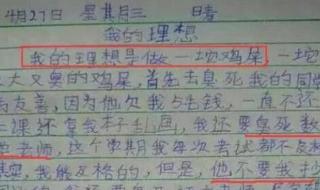 4月27日 星其月三 晴
我的理想
我的理想是做一坨鸡屎,一坨
又大又臭的鸡屎,首先去臭死我的同
友善,因为他欠我5毛钱,一直不还
上课还拿我本子乱画,我还要臭死数
学老师,这个学期我每次考试都不及格
其实,我能及格的,但是,他不要我抄